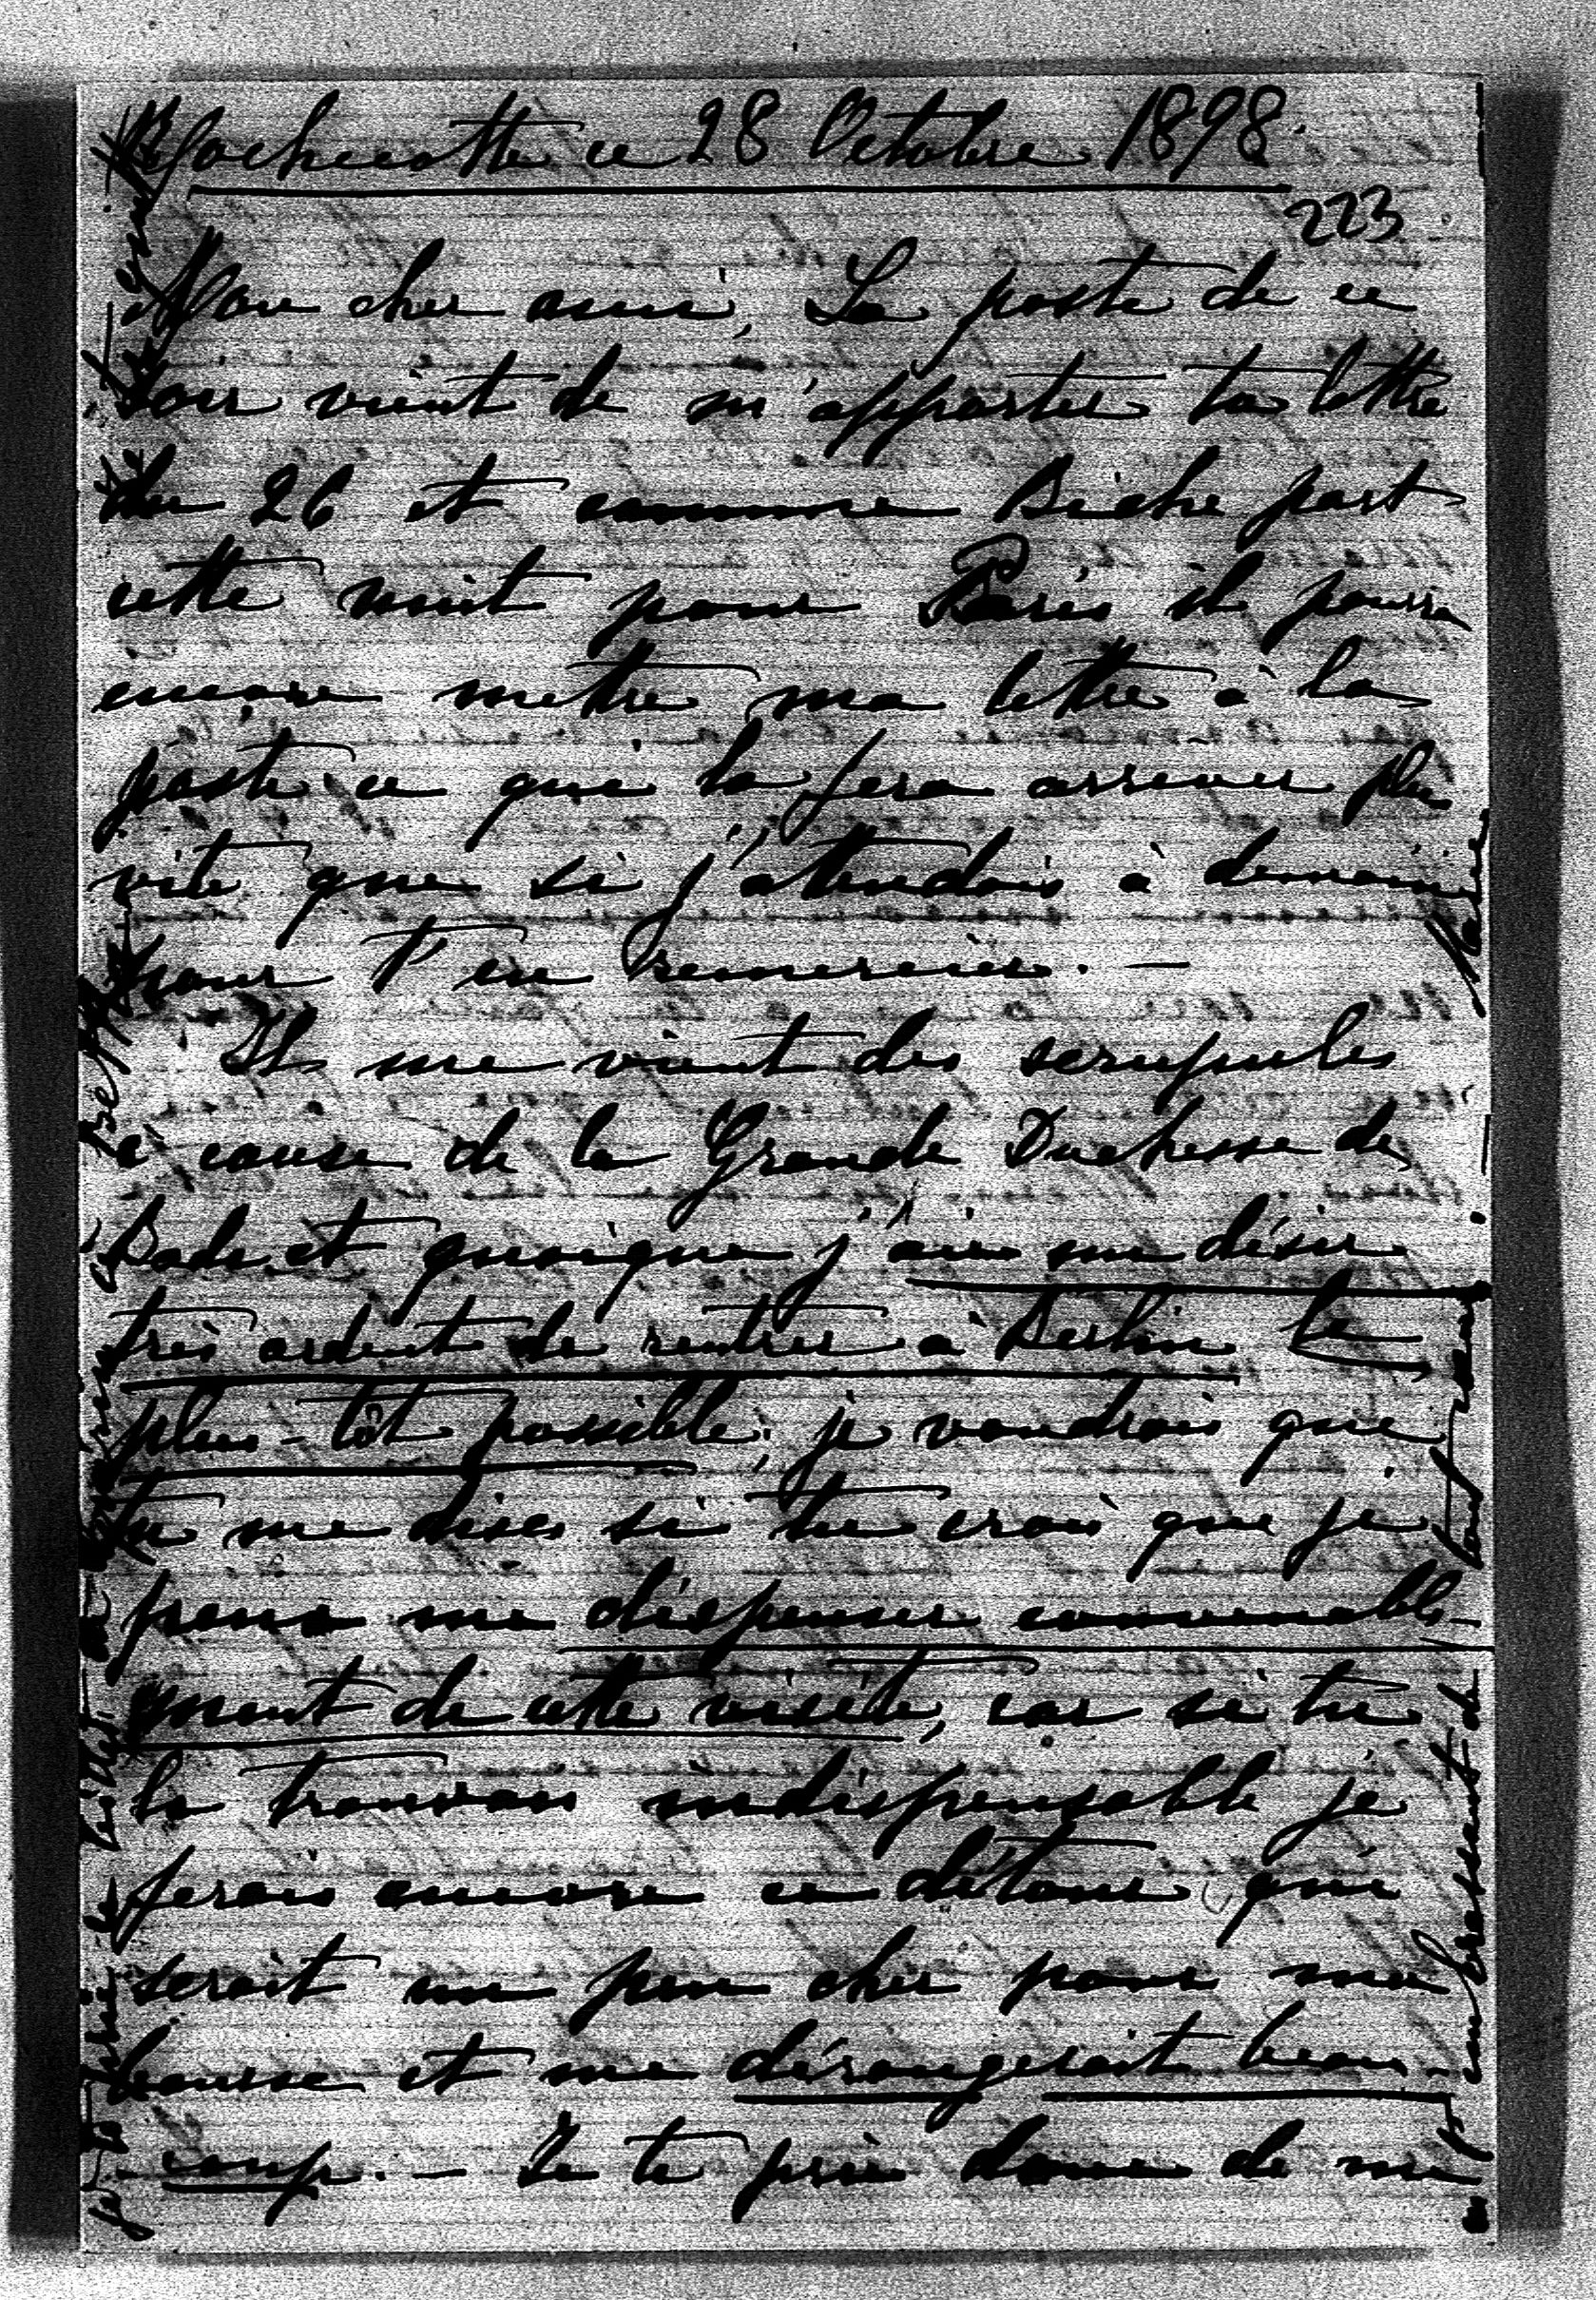 Rochecotte ce 28 Octobre 1898.
223
Mon cher ami, La poste de ce
soir vient de m'apporter ta lettre
du 26 et comme Biche part
cette nuit pour Paris il pourra
encore mettre ma lettre à la
poste ce qui la fera arriver plus
vite que si j'attendais à demain
pour t'en remercier. —
Il me vient des scrupules
à cause de la Grande Duchesse de
Bade et quoique j'aie un désir
très ardent de rentrer à Berlin le
plus-tôt possible, je voudrais que
tu me dises si tu crois que je
peux me dispenser convenable-
ment de cette visite, car si tu
la trouvais indispensable je
ferais encore ce détour qui
serait un peu cher pour ma
bourse et me dérangerait beau-
coup. — Je te prie donc de me
embrassant de
tout
Marie